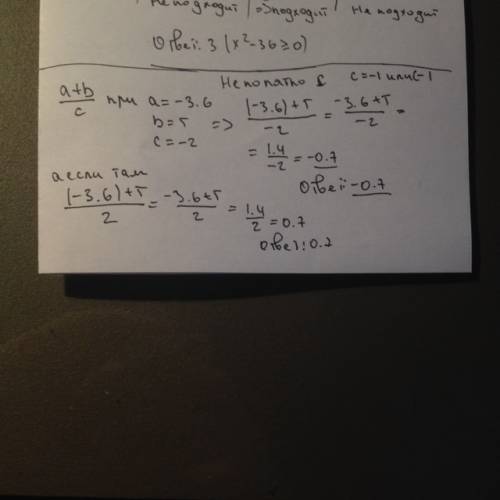 не подходит | подходит | не подходит
Ответ: 3 (x²-36≥0)
Непонятно c=-1 или (-1
a+b/c при a=-3.6 b=5 c=-2 => (-3.6)+5/-2 = -3.6+5/-2 =
= 1.4/-2 = -0.7
Ответ: -0.7
а если там
(-3.6)+5/2 = -3.6+5/2 = 1.4/2 = 0.7
Ответ: 0.7